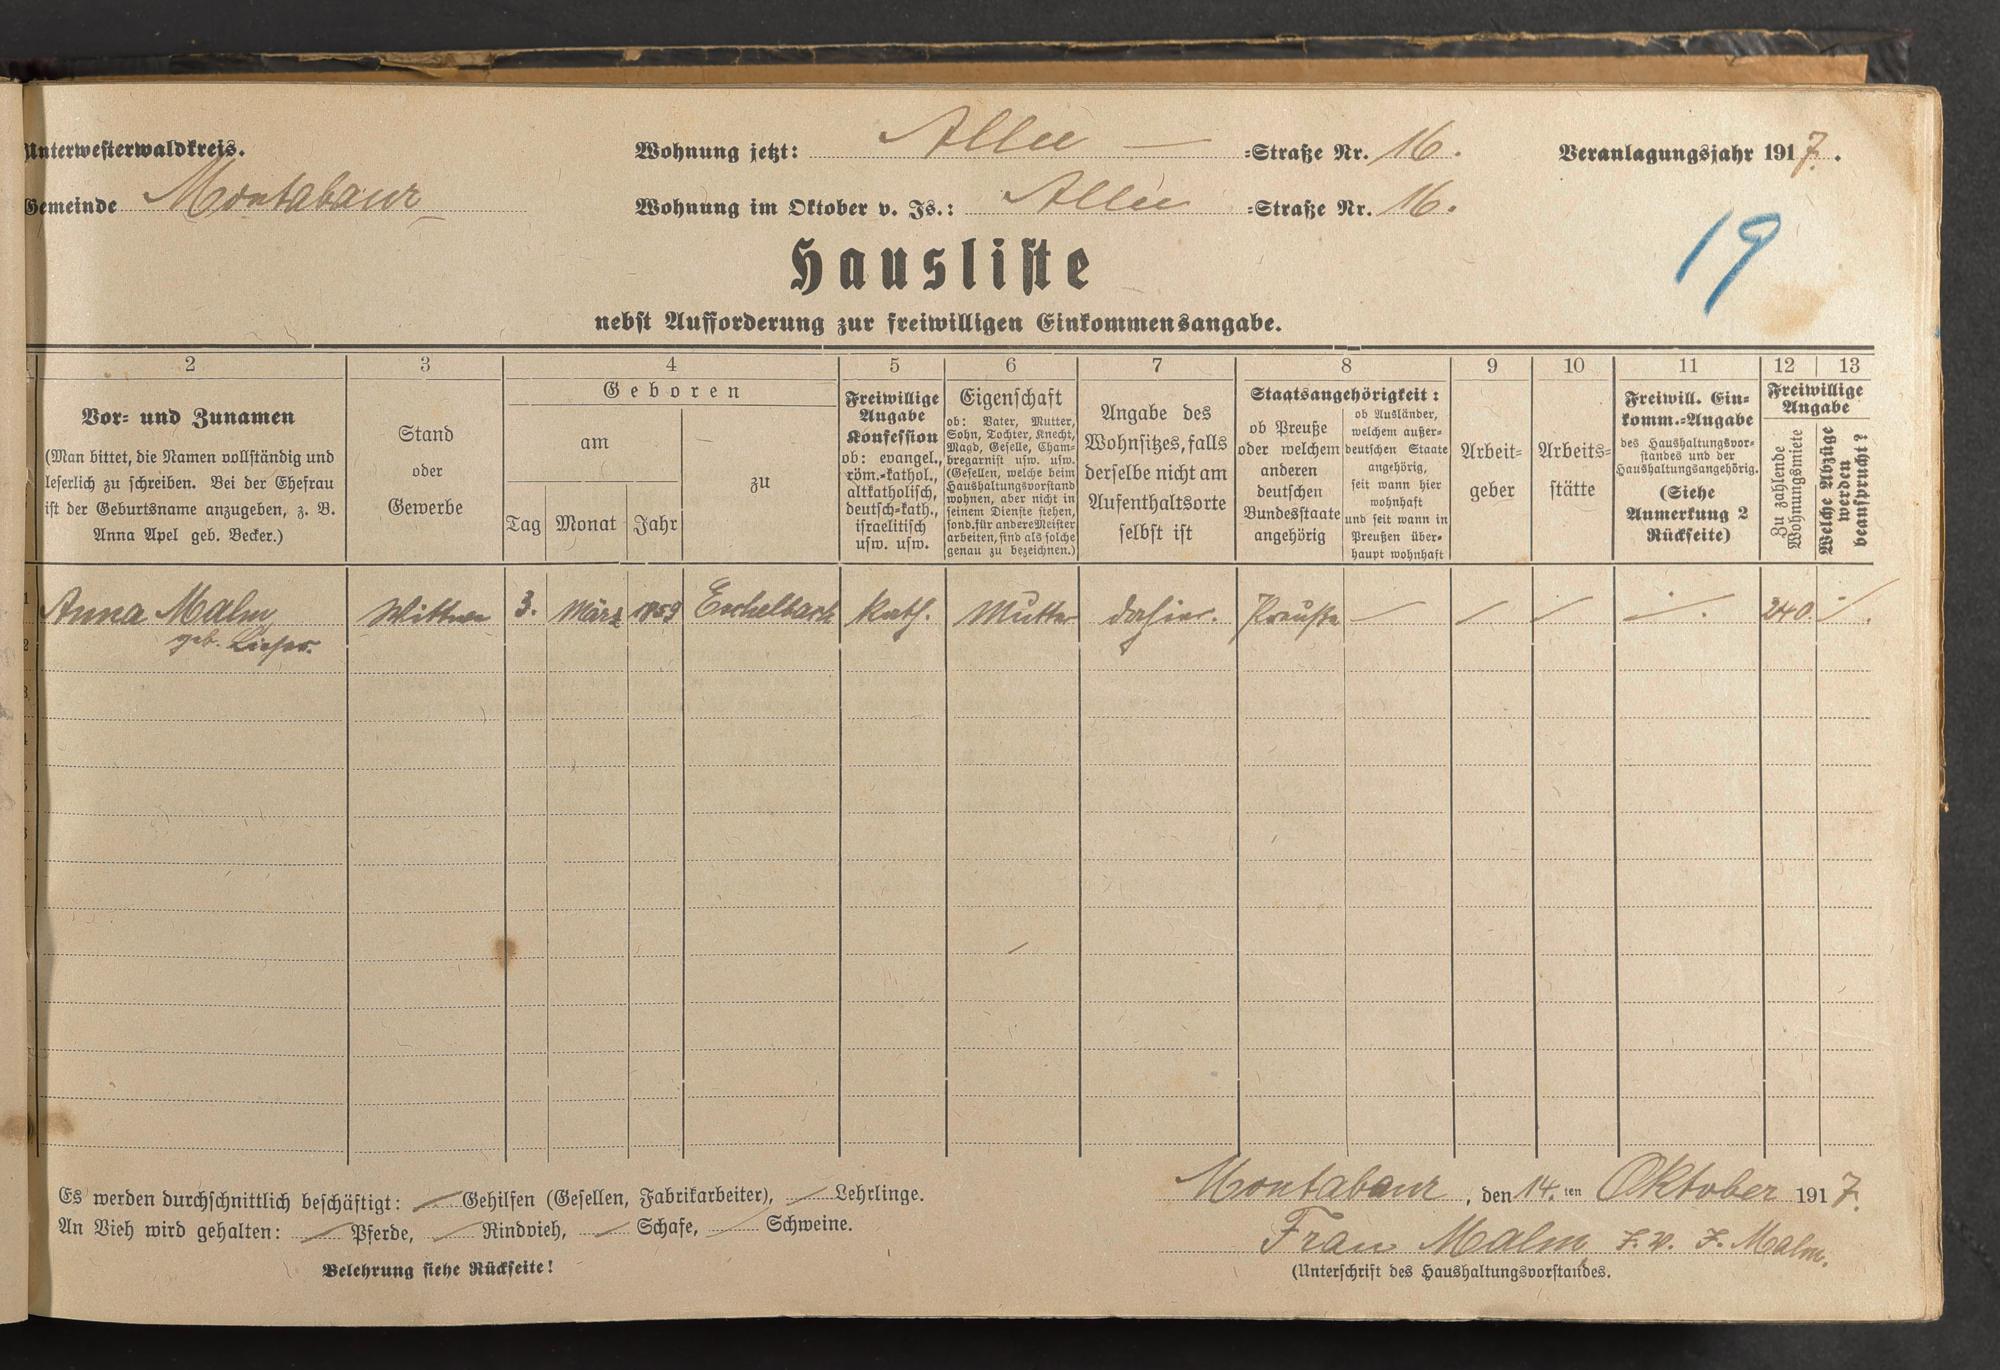 Unterwesterwaldkreis.
Wohnung jetzt: Allee — =Straße Nr. 16.
Veranlagungsjahr 1917.
Gemeinde Montabaur
Wohnung im Oktober v. Js.: Allee =Straße Nr. 16.
19
Hausliste
nebst Aufforderung zur freiwilligen Einkommensangabe.
2 3 4 5 6 7 8 9 10 11 12 13
Vor- und Zunamen
(Man bittet, die Namen vollständig und
leserlich zu schreiben. Bei der Ehefrau
ist der Geburtsname anzugeben, z. B.
Anna Apel geb. Becker.)
Stand
oder
Gewerbe
Geboren
am
Tag Monat Jahr
zu
Freiwillige
Angabe
Konfession
ob: evangel.,
röm.-kathol.,
altkatholisch,
deutsch-kath.,
israelitisch
usw. usw.
Eigenschaft
ob: Vater, Mutter,
Sohn, Tochter, Knecht,
Magd, Geselle, Cham-
bregarnist usw. usw.
(Gesellen, welche beim
Haushaltungsvorstand
wohnen, aber nicht in
seinem Dienste stehen,
sond. für andere Meister
arbeiten, sind als solche
genau zu bezeichnen.)
Angabe des
Wohnsitzes, falls
derselbe nicht am
Aufenthaltsorte
selbst ist
Staatsangehörigkeit:
ob Preuße
oder welchem
anderen
deutschen
Bundesstaate
angehörig
ob Ausländer,
welchem außer-
deutschen Staate
angehörig,
seit wann hier
wohnhaft
und seit wann in
Preußen über-
haupt wohnhaft
Arbeit-
geber
Arbeits-
stätte
Freiwill. Ein-
komm.-Angabe
des Haushaltungsvor-
standes und der
Haushaltungsangehörig.
(Siehe
Anmerkung 2
Rückseite)
Freiwillige
Angabe
Zu zahlende
Wohnungsmiete
Welche Abzüge
werden
beansprucht?
1 Anna Malm Wittwe 3. März 1859 Eschelbach kath. Mutter dahier. Preuße — 240.
geb. Lieser.
Es werden durchschnittlich beschäftigt: Gehilfen (Gesellen, Fabrikarbeiter), Lehrlinge.
An Vieh wird gehalten: Pferde, Rindvieh, Schafe, Schweine.
Belehrung siehe Rückseite!
Montabaur, den 14. ten Oktober 1917.
Frau Malm z. V. J. Malm.
(Unterschrift des Haushaltungsvorstandes.